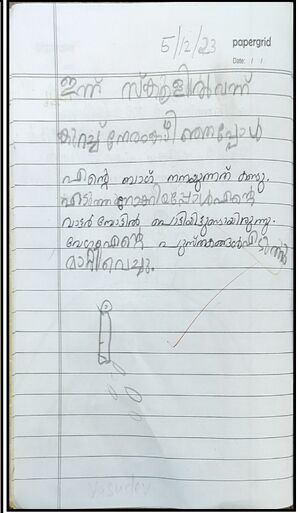 5/12/23
papergrid
Date: / /
ഇന്ന് സ്കൂളിൽ വന്ന്
കുറച്ച് നേരം കഴിഞ്ഞപ്പോൾ
എന്റെ ബാഗ് നനയുന്നത് കണ്ടു.
എടുത്ത് നോക്കിയപ്പോൾ എന്റെ
വാട്ടർ ബോട്ടിൽ പൊട്ടിയിട്ടുണ്ടായിരുന്നു.
വേഗം എന്റെ പുസ്തകങ്ങൾ എടുത്ത്
മാറ്റി വെച്ചു.
Vasudev